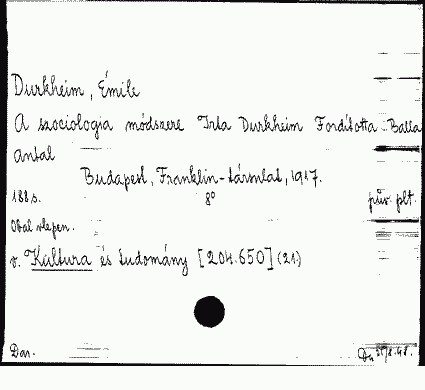 Durkheim, Émile
A szociologia módszere Irta Durkheim Fordította Balla
Antal
Budapest, Franklin-társulat, 1917.
188 s. 8° pův. plt.
Obál vlepen.
v. Kultura és tudomány [204.650] (21.)
Dar.